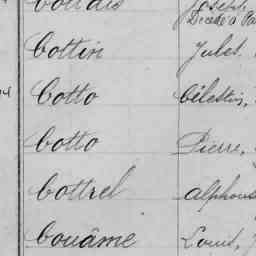 Joseph,
Décédé à Pa
Cottin Jules
Cotto Célestin,
Cotto Pierre,
Cottrel Alphons
Couâme Louis,